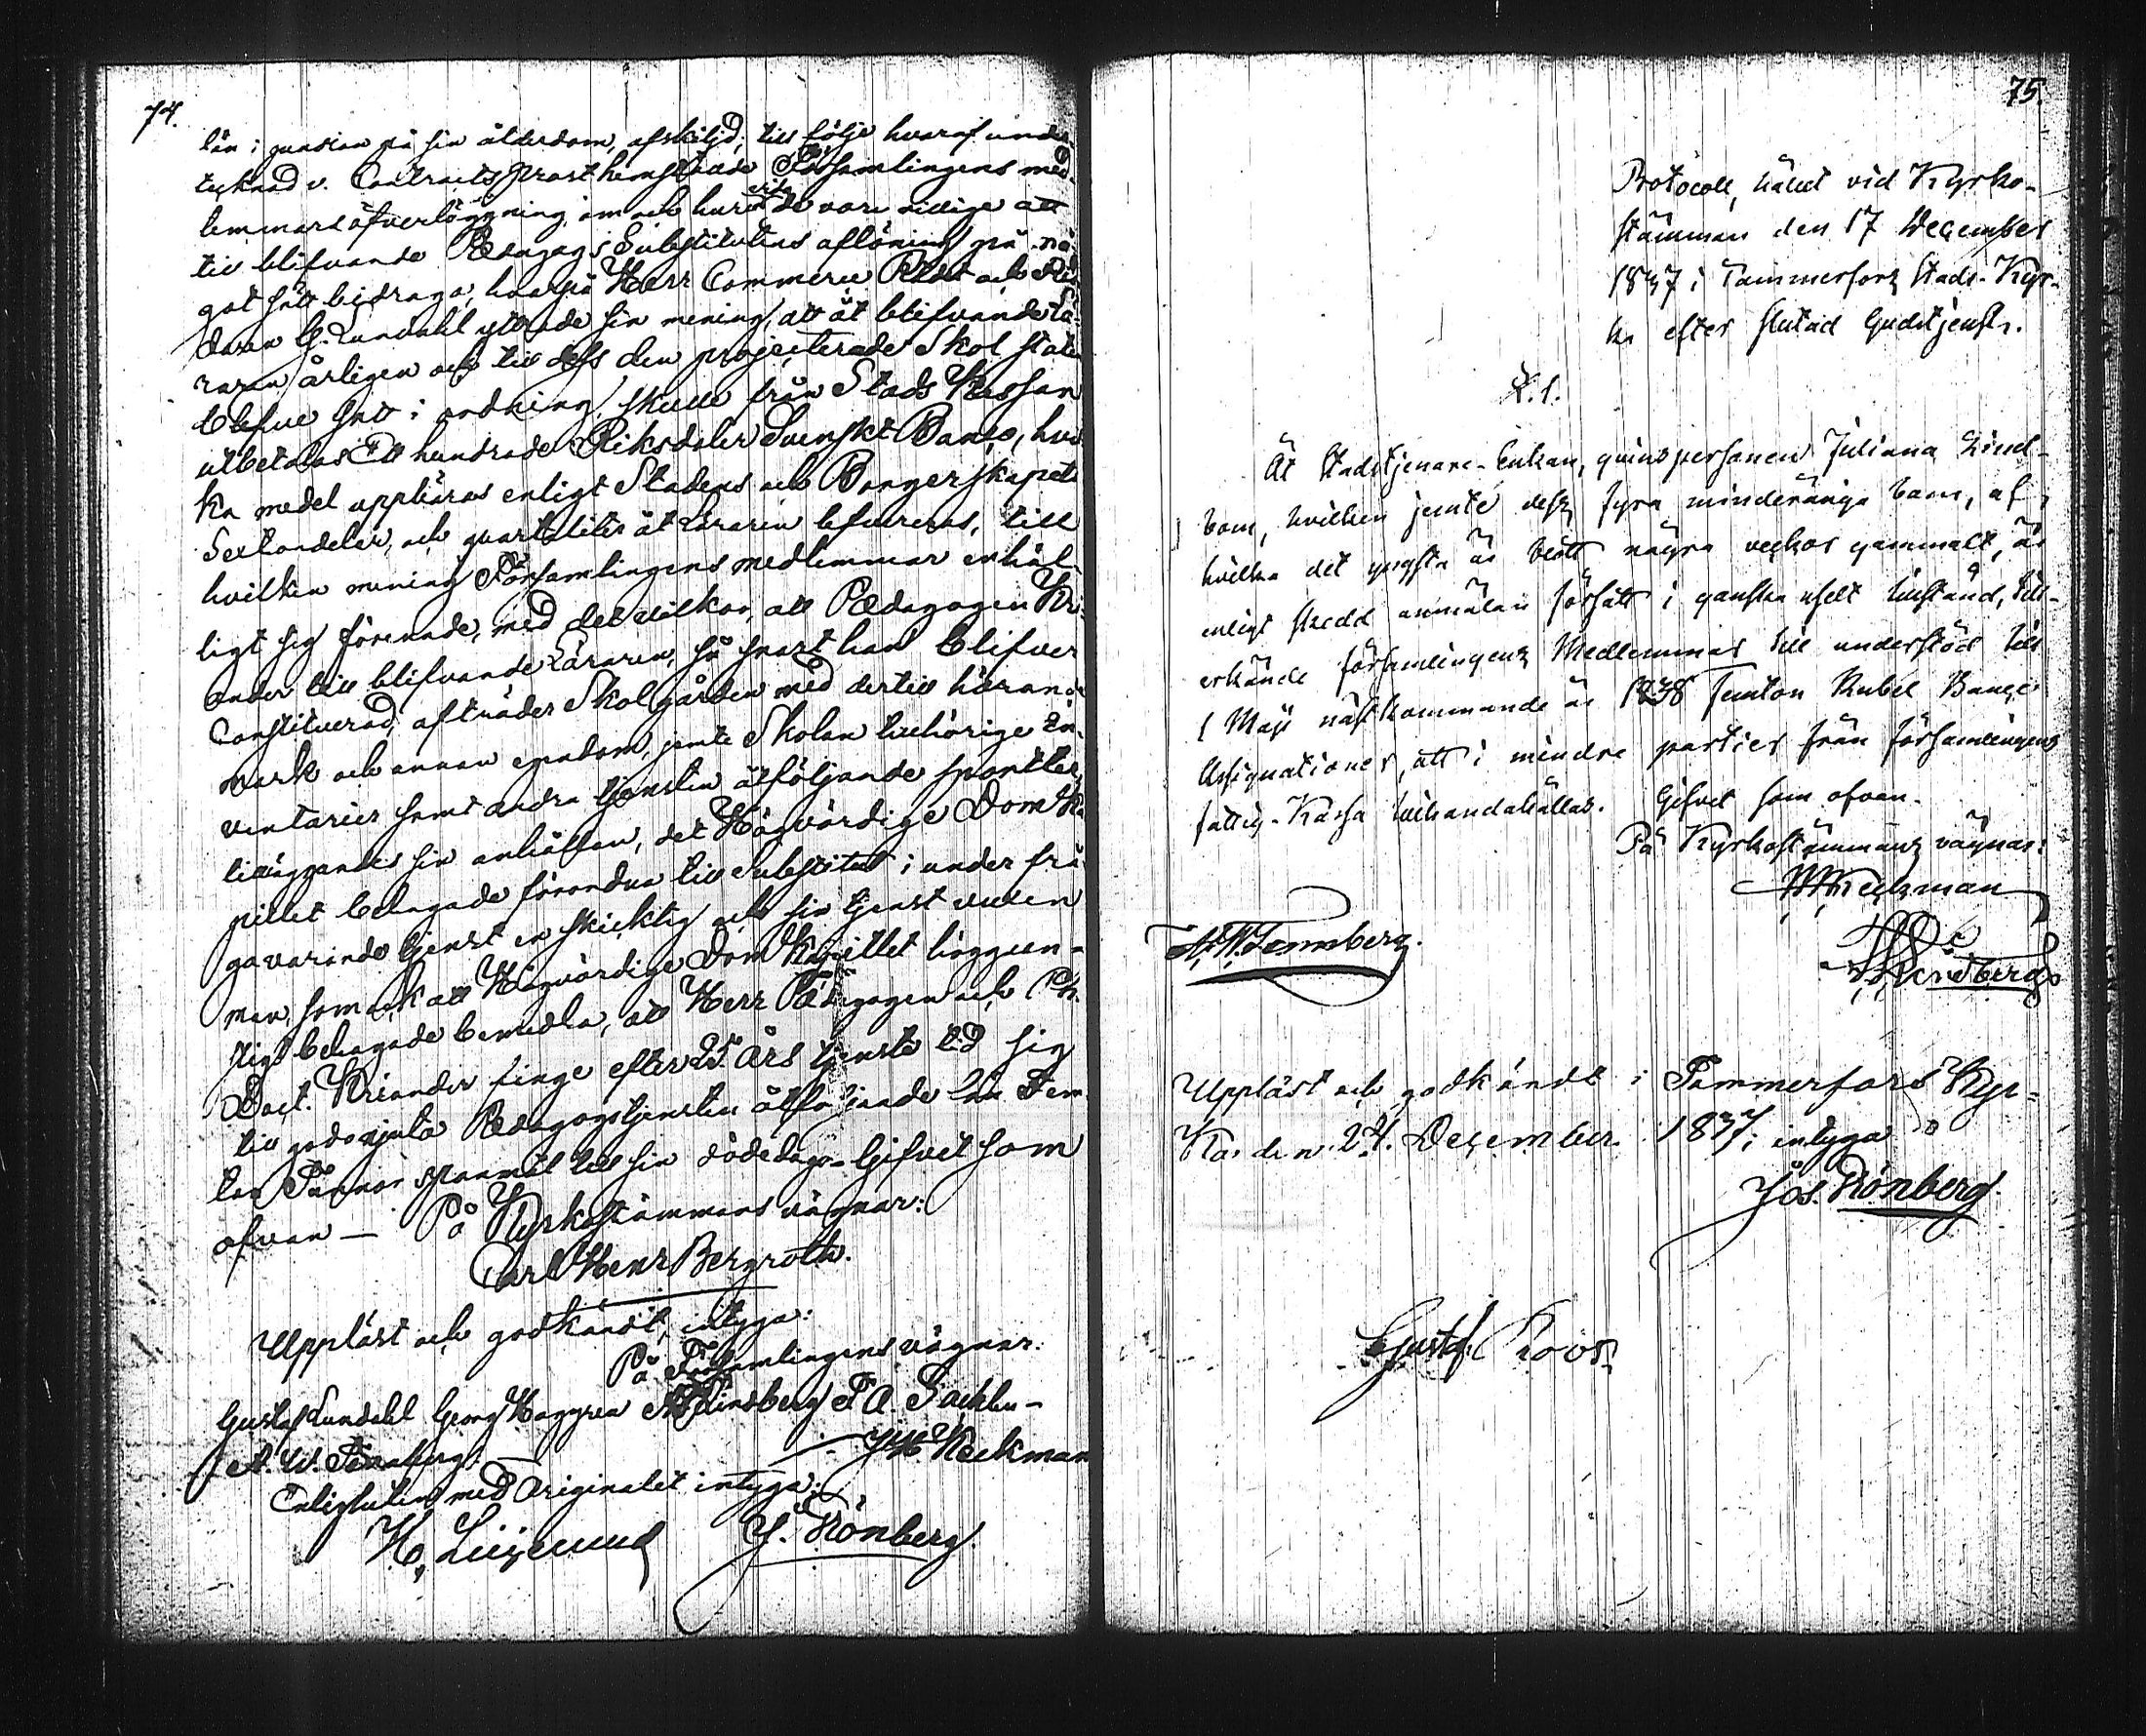 74.
lön i pension på sin ålderdom, afskiljd; till följe hvaraf under-
tecknad v. Contracts Prost hemställde Församlingens med-
lemmars öfverläggning, om och huruvida de voro villige att
till blifvande Pædagogs Substitutens aflöning på nå-
got sätt bidraga, hvarpå Herr Commerce Rådet och Rid-
daren G. Lundahl yttrade sin mening, att åt blifvande Lä-
raren årligen och till dess den projecterade Skol staten
blefve satt i ordning, skulle från Stads Kassan
utbetalas Ett hundrade Riksdaler Svenskt Banco, hvil-
ka medel uppbäras enligt Stadens och Borgerskapets
Sextondelar, och qvartaliter åt Läraren lefvereras, till
hvilken mening Församlingens medlemmar enhäl-
ligt sig förenade, med det vilkor, att Pædagogen Kri-
ander till blifvande Läraren, så snart han blifver
Constituerad, afträder Skolgården med dertill hörande
mark och annan egendom, jemte Skolan tillhörige In-
ventarier samt andra tjensten åtföljande sportler,
tilläggandes sin anhållan, det Högvördige DomKa-
pitlet behagade förordna till Substitut i under frå-
gavarande tjenst en skicklig och sin tjenst vuxen
man, som ock att Högvördige DomKapitlet höggun-
stigt behagade bemedla, att Herr Pædagogen och Ph.
Doct. Kriander finge efter 25 års tjenste tid sig
till godo njuta Pædagogstjensten åtföljande lön Fem-
ton Tunnor spannmål till sin dödedag. Gifvet som
ofvan — På Kyrkostämmans vägnar:
Carl Henr Bergroth.
Uppläst och godkändt, intyga:
På Församlingens vägnar.
Gustaf Lundahl Georg Haggren Lindberg F A. Sacklen
A. W. Tennberg. Heckman
Enligheten med Originalet intyga:
H. Liljelund J. Grönberg.
75.
Protocoll, hållet vid Kyrko-
stämman den 17 December
1837 i Tammerfors Stads-Kyr-
ka efter slutad Gudstjenst.
§. 1.
Åt Stadstjenare-Enkan, qvinspersonen Juliana Lind-
bom, hvilken jemte dess fyra minderåriga barn, af
hvilka det yngsta är blott några veckor gammalt, är
enligt skedd anmälan försatt i ganska uselt tillstånd, till-
erkände församlingens Medlemmar till understöd till
1 Maji nästkommande år 1838 Femton Rubel Banco
Assignationer, att i mindre partier från församlingens
fattig-Kassa tillhandahållas. Gifvet som ofvan.
På Kyrkostämmans vägnar:
Heckman
A. W. Tennberg.
Lindberg
Uppläst och godkändt i Tammerfors Kyr-
ka, den 24. December 1837; intyga
Jos. Grönberg.
Gustaf Roos